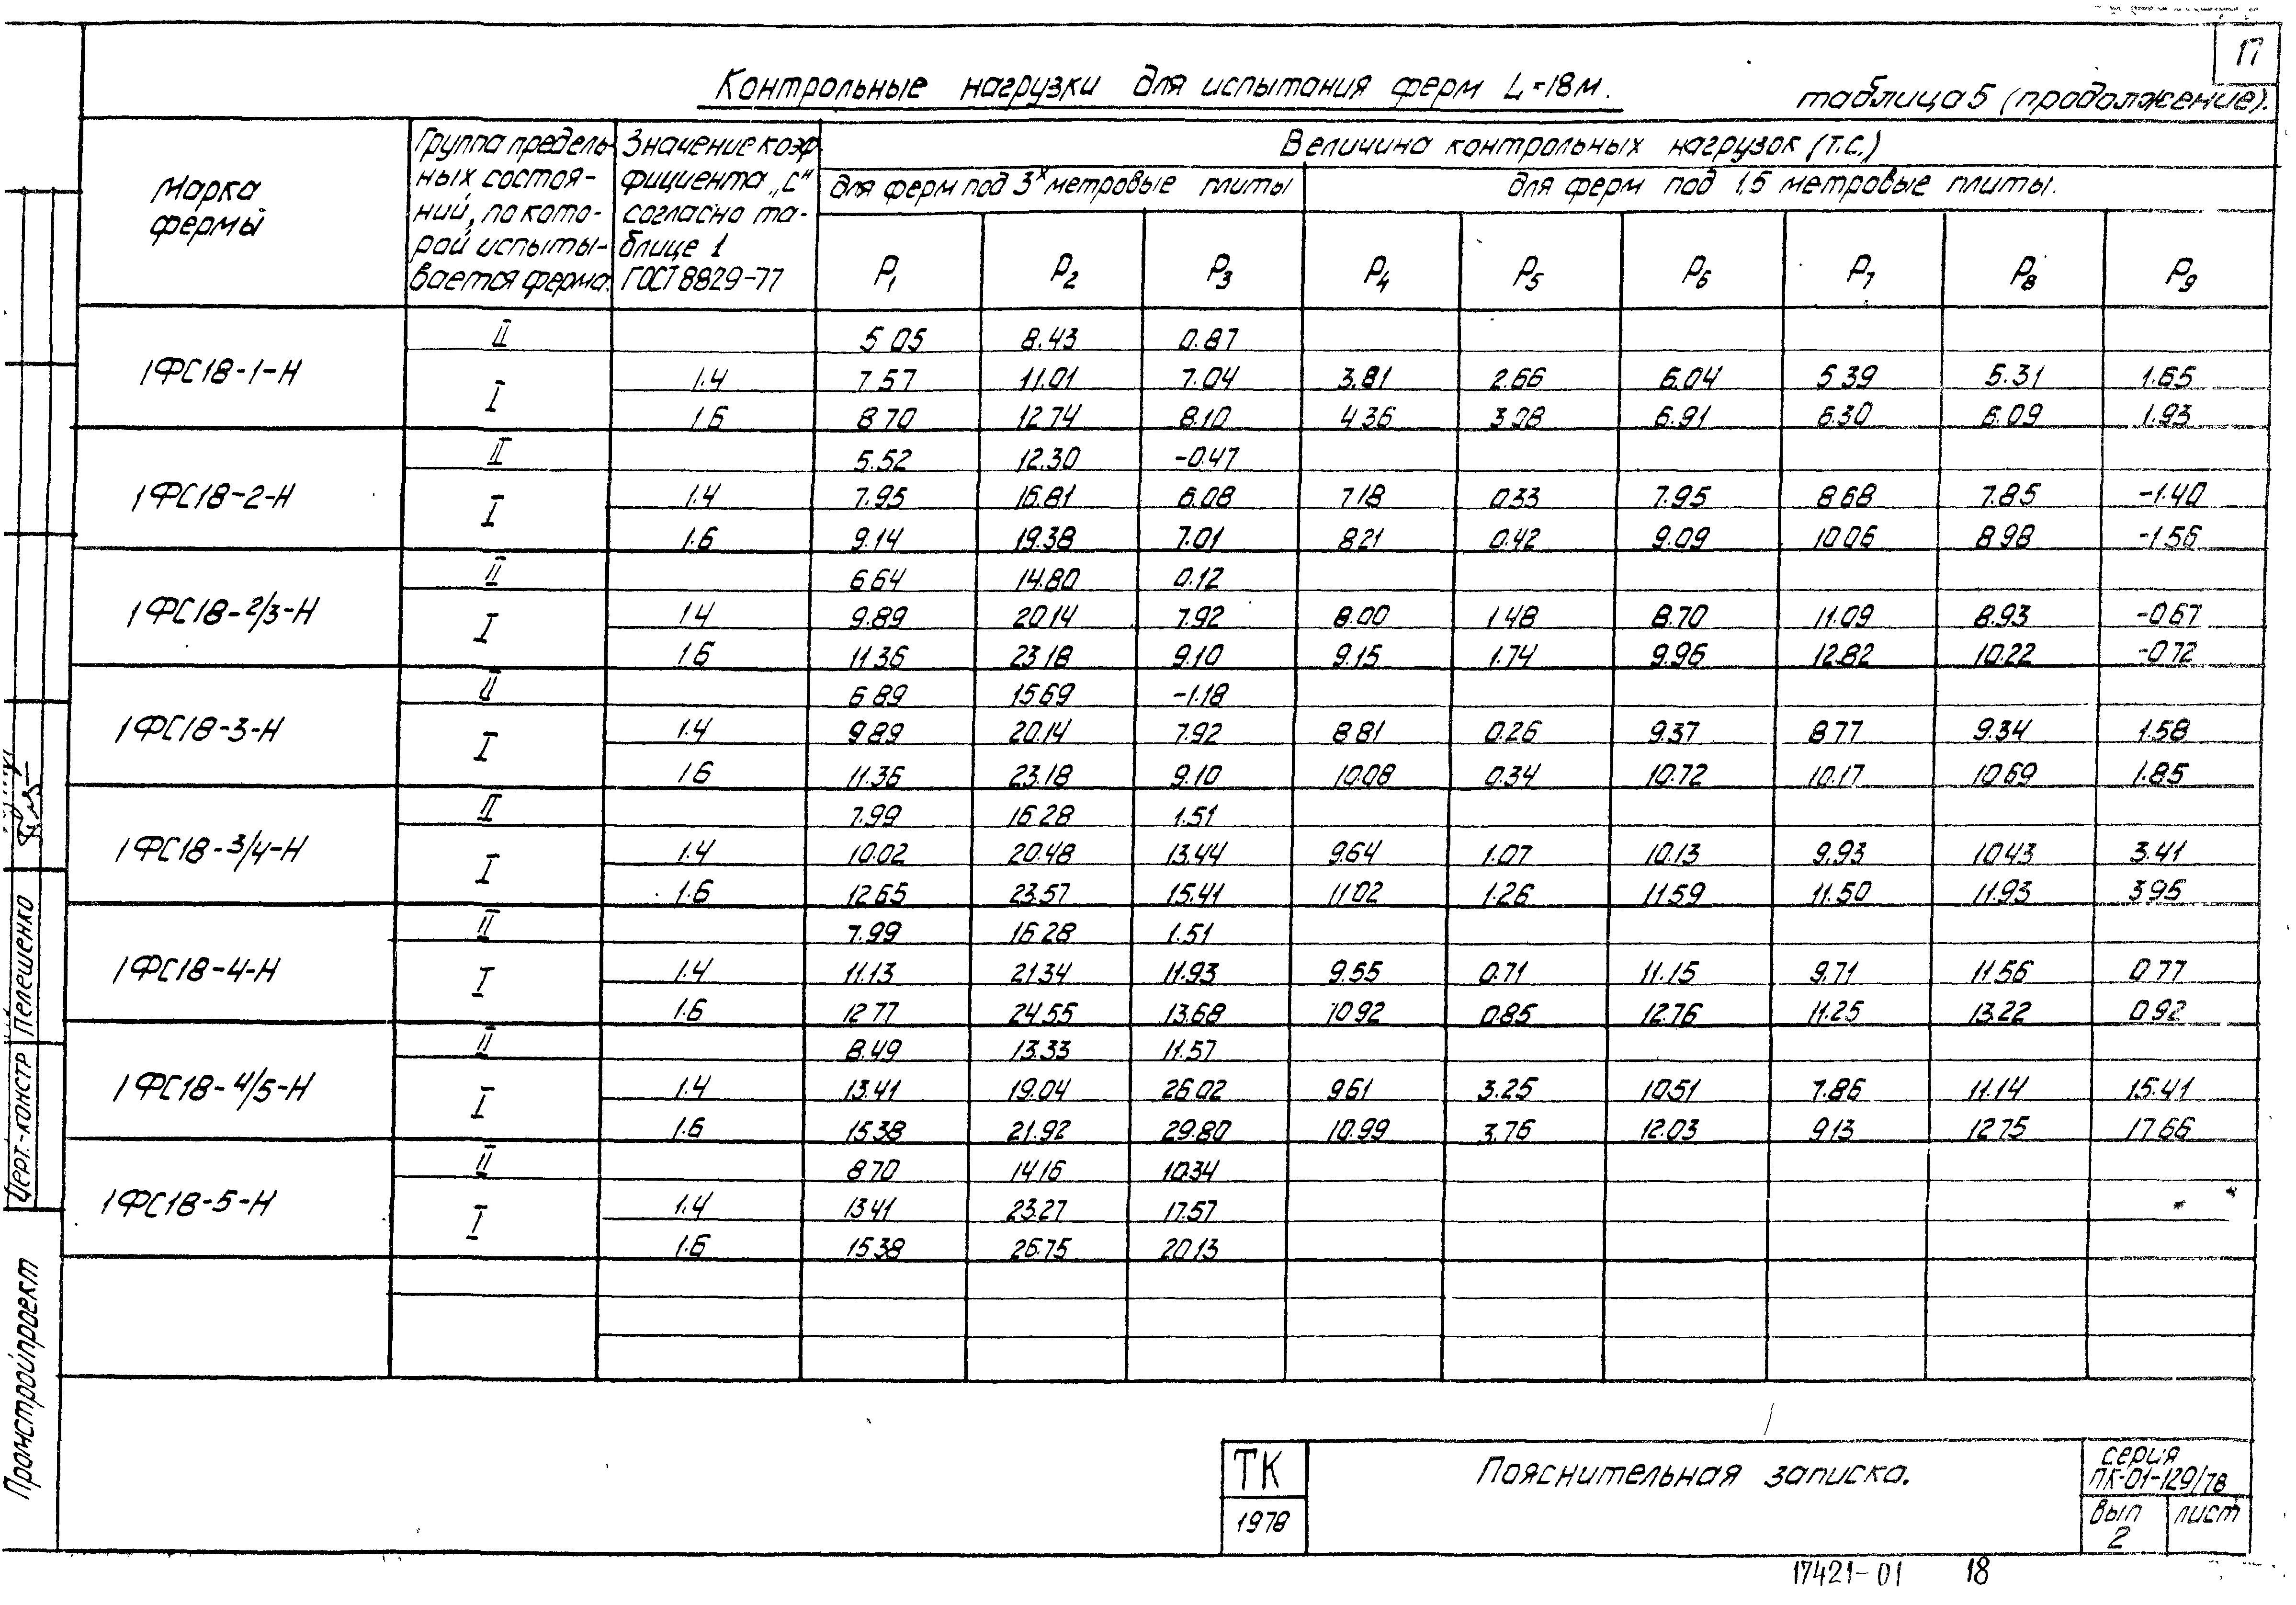 17
Контрольные нагрузки для испытания ферм L=18м.
таблица 5 (продолжение).
Марка фермы
Группа предель-
ных состоя-
ний, по кото-
рой испыты-
вается ферма.
Значение коэф-
фициента „С"
согласно та-
блице 1
ГОСТ 8829-77
Величина контрольных нагрузок (т.с.)
для ферм под 3х метровые плиты
для ферм под 1,5 метровые плиты.
P1 P2 P3 P4 P5 P6 P7 P8 P9
1ФС18-1-Н
II 5.05 8.43 0.87
I 1.4 7.57 11.01 7.04 3.81 2.66 6.04 5.39 5.31 1.65
1.6 8.70 12.74 8.10 4.36 3.08 6.91 6.30 6.09 1.93
1ФС18-2-Н
II 5.52 12.30 -0.47
I 1.4 7.95 16.81 6.08 7.18 0.33 7.95 8.68 7.85 -1.40
1.6 9.14 19.38 7.01 8.21 0.42 9.09 10.06 8.98 -1.56
1ФС18-2/3-Н
II 6.64 14.80 0.12
I 1.4 9.89 20.14 7.92 8.00 1.48 8.70 11.09 8.93 -0.67
1.6 11.36 23.18 9.10 9.15 1.74 9.96 12.82 10.22 -0.72
1ФС18-3-Н
II 6.89 15.69 -1.18
I 1.4 9.89 20.14 7.92 8.81 0.26 9.37 8.77 9.34 1.58
1.6 11.36 23.18 9.10 10.08 0.34 10.72 10.17 10.69 1.85
1ФС18-3/4-Н
II 7.99 16.28 1.51
I 1.4 10.02 20.48 13.44 9.64 1.07 10.13 9.93 10.43 3.41
1.6 12.65 23.57 15.41 11.02 1.26 11.59 11.50 11.93 3.95
1ФС18-4-Н
II 7.99 16.28 1.51
I 1.4 11.13 21.34 11.93 9.55 0.71 11.15 9.71 11.56 0.77
1.6 12.77 24.55 13.68 10.92 0.85 12.76 11.25 13.22 0.92
1ФС18-4/5-Н
II 8.49 13.33 11.57
I 1.4 13.41 19.04 26.02 9.61 3.25 10.51 7.86 11.14 15.41
1.6 15.38 21.92 29.80 10.99 3.76 12.03 9.13 12.75 17.66
1ФС18-5-Н
II 8.70 14.16 10.34
I 1.4 13.41 23.27 17.57
1.6 15.38 26.75 20.13
Церт.-констр Пелешенко
Промстройпроект
ТК
1978
Пояснительная записка.
серия
ПК-01-129/78
вып
2
лист
17421-01 18